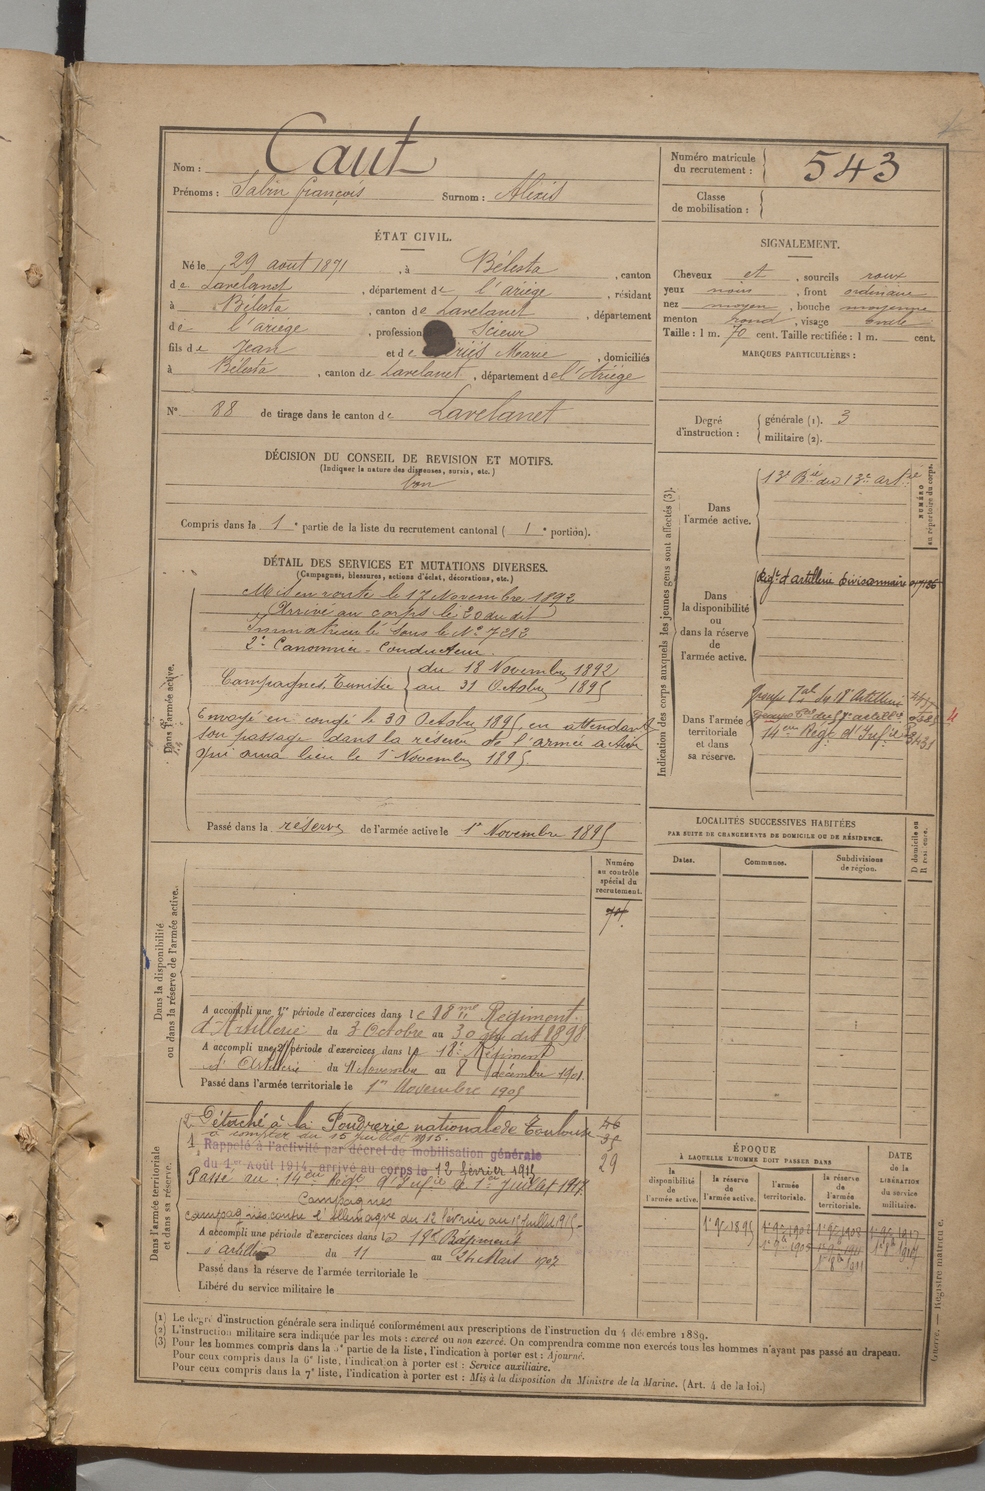 Nom : Caut
Prénoms : Sabin françois Surnom : Alexis
Numéro matricule du recrutement : 543
Classe de mobilisation :
ÉTAT CIVIL.
Né le 29 aout 1871, à Bélesta, canton
de Lavelanet, département de l'ariège, résidant
à Bélesta, canton de Lavelanet, département
de l'ariège, profession Scieur
fils de Jean et de Marie, domiciliés
à Bélesta, canton de Lavelanet, département de l'Ariège
N° 88 de tirage dans le canton de Lavelanet
SIGNALEMENT.
Cheveux et, sourcils roux
yeux noirs, front ordinaire
nez moyen, bouche moyenne
menton rond, visage ovale
Taille : 1 m. 70 cent. Taille rectifiée : 1 m. cent.
MARQUES PARTICULIÈRES :
Degré d'instruction : générale (1). 3
militaire (2).
DÉCISION DU CONSEIL DE REVISION ET MOTIFS.
(Indiquer la nature des dispenses, sursis, etc.)
bon
Compris dans la 1e partie de la liste du recrutement cantonal ( 1e portion).
DÉTAIL DES SERVICES ET MUTATIONS DIVERSES.
(Campagnes, blessures, actions d'éclat, décorations, etc.)
Dans l'armée active.
Mis en route le 17 Novembre 1892
Arrivé au corps le 20 du dit
immatriculé sous le N° 7212
2e Canonnier-Conducteur.
Campagnes Tunisie du 18 Novembre 1892
au 31 Octobre 1895
Envoyé en congé le 30 Octobre 1895 en attendant
son passage dans la réserve de l'armée active
qui aura lieu le 1er Novembre 1895
Passé dans la réserve de l'armée active le 1er Novembre 1895
Indication des corps auxquels les jeunes gens sont affectés (3).
NUMÉRO au répertoire du corps.
Dans l'armée active.
13e Bie du 13e artrie
Dans la disponibilité ou dans la réserve de l'armée active.
Regt d'artillerie divisionnaire
Dans l'armée territoriale et dans sa réserve.
Groupe Tal du 18e Artillerie
14eme Régt d'Infie
LOCALITÉS SUCCESSIVES HABITÉES
PAR SUITE DE CHANGEMENTS DE DOMICILE OU DE RÉSIDENCE.
Dates. Communes. Subdivisions de région. D domicile ou R résidence.
Numéro au contrôle spécial du recrutement.
Dans la disponibilité ou dans la réserve de l'armée active.
A accompli une 1re période d'exercices dans le 18me Régiment
d'Artillerie du 3 Octobre au 30 du dit 1898
A accompli une 2e période d'exercices dans le 18e Régiment
d'Artillerie du 11 Novembre au 8 décembre 1901.
Passé dans l'armée territoriale le 1er Novembre 1905
Dans l'armée territoriale et dans sa réserve.
2. Détaché à la Poudrerie nationale de Toulouse
à compter du 15 juillet 1915.
1. Rappelé à l'activité par décret de mobilisation générale
du 1er Août 1914, arrivé au corps le 12 février 1915
Passé au 14eme Régt d'Infie le 1er Juillet 1917.
Campagnes
campagnes contre l'Allemagne du 12 février au 15 Juillet 1915
A accompli une période d'exercices dans le 18e Régiment
d'artillerie du 11 au 24 Mars 1907
Passé dans la réserve de l'armée territoriale le
Libéré du service militaire le
29
ÉPOQUE
À LAQUELLE L'HOMME DOIT PASSER DANS
la disponibilité de l'armée active. la réserve de l'armée active. l'armée territoriale. la réserve de l'armée territoriale.
DATE de la LIBÉRATION du service militaire.
1er 9bre 1895
(1) Le degré d'instruction générale sera indiqué conformément aux prescriptions de l'instruction du 4 décembre 1889.
(2) L'instruction militaire sera indiquée par les mots : exercé ou non exercé. On comprendra comme non exercés tous les hommes n'ayant pas passé au drapeau.
(3) Pour les hommes compris dans la 5e partie de la liste, l'indication à porter est : Ajourné.
Pour ceux compris dans la 6e liste, l'indication à porter est : Service auxiliaire.
Pour ceux compris dans la 7e liste, l'indication à porter est : Mis à la disposition du Ministre de la Marine. (Art. 4 de la loi.)
Guerre. — Registre matricule.